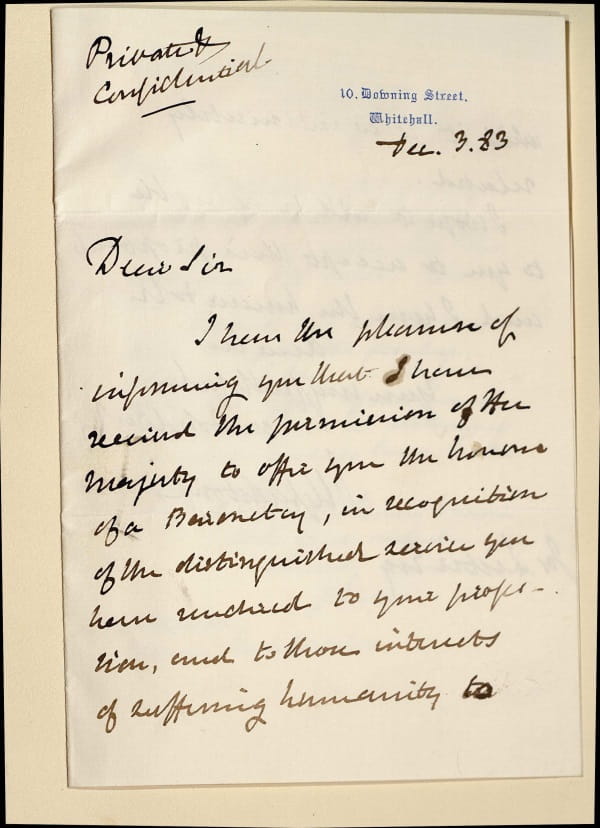 Private &
Confidential
10. Downing Street,
Whitehall.
Dec. 3. 83
Dear Sir
I have the pleasure of
informing you that I have
received the permission of Her
Majesty to offer you the honour
of a Baronetcy, in recognition
of the distinguished service you
have rendered to your profes-
sion, and to those interests
of suffering humanity to